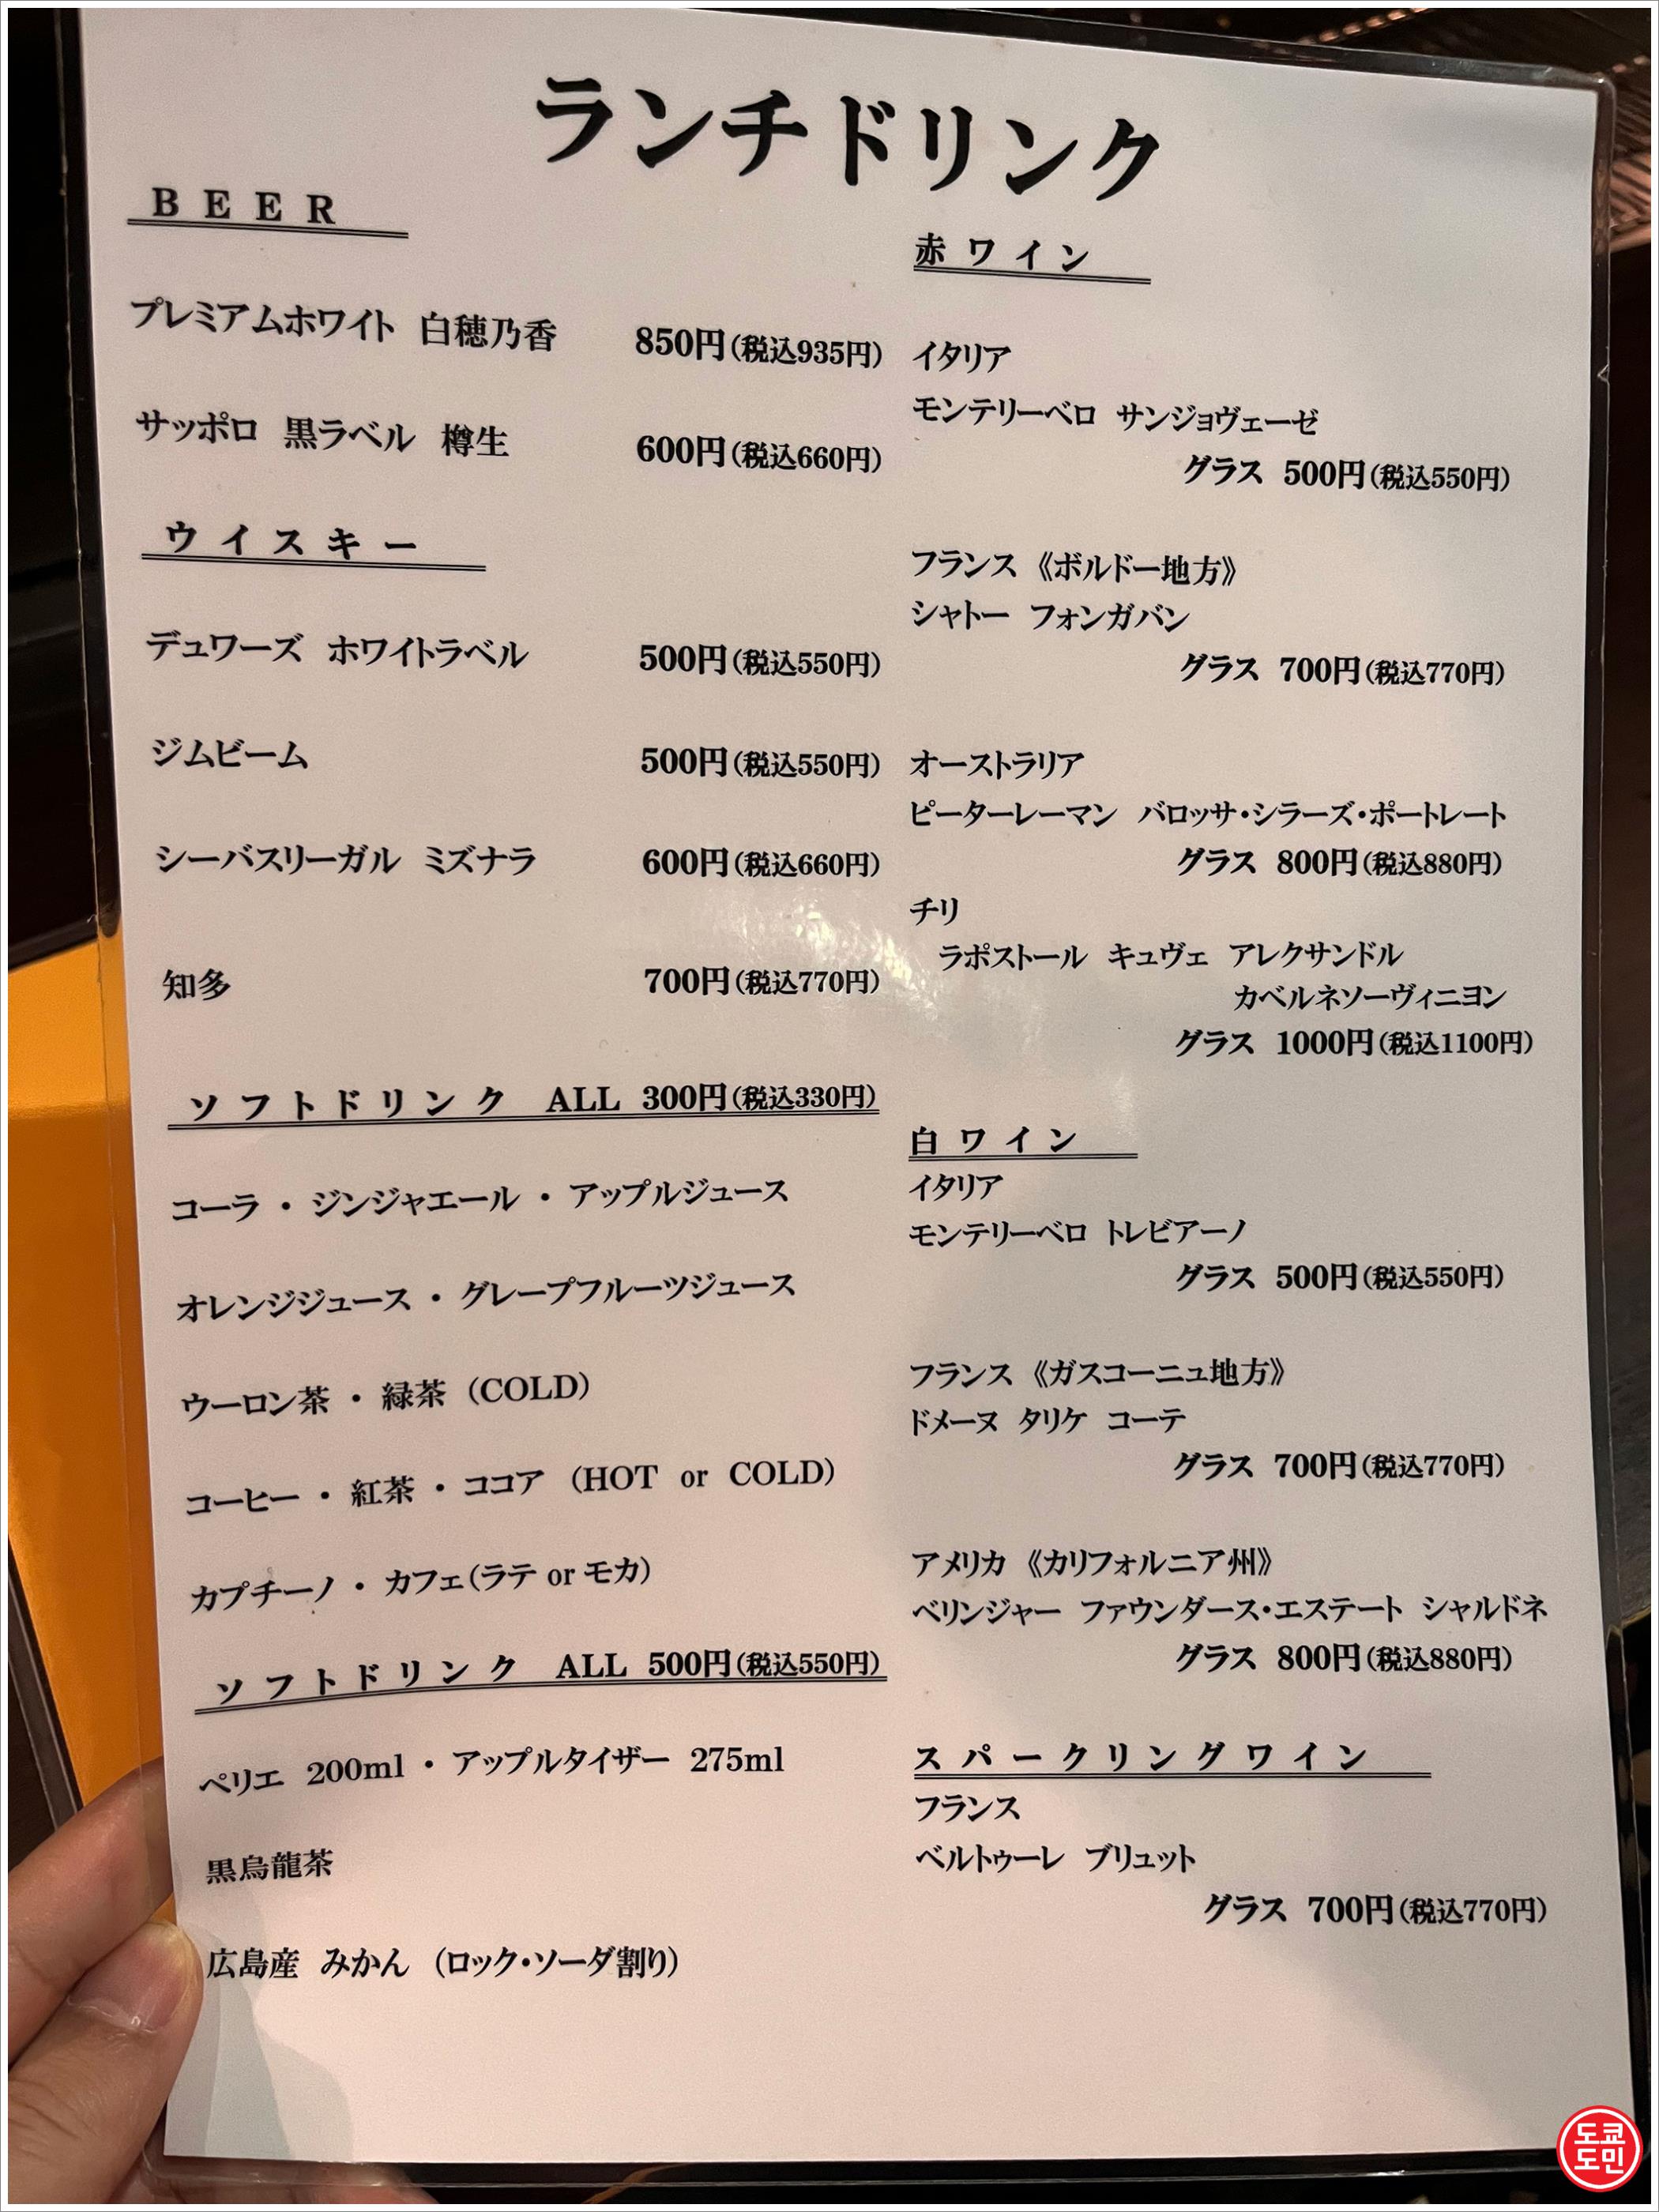 ランチドリンク
BEER
プレミアムホワイト 白穂乃香 850円(税込935円)
サッポロ 黒ラベル 樽生 600円(税込660円)
ウイスキー
デュワーズ ホワイトラベル 500円(税込550円)
ジムビーム 500円(税込550円)
シーバスリーガル ミズナラ 600円(税込660円)
知多 700円(税込770円)
ソフトドリンク ALL 300円(税込330円)
コーラ ・ ジンジャエール ・ アップルジュース
オレンジジュース ・ グレープフルーツジュース
ウーロン茶 ・ 緑茶 (COLD)
コーヒー ・ 紅茶 ・ ココア (HOT or COLD)
カプチーノ ・ カフェ(ラテ or モカ)
ソフトドリンク ALL 500円(税込550円)
ペリエ 200ml ・ アップルタイザー 275ml
黒烏龍茶
広島産 みかん (ロック・ソーダ割り)
赤ワイン
イタリア
モンテリーベロ サンジョヴェーゼ
グラス 500円(税込550円)
フランス 《ボルドー地方》
シャトー フォンガバン
グラス 700円(税込770円)
オーストラリア
ピーターレーマン バロッサ・シラーズ・ポートレート
グラス 800円(税込880円)
チリ
ラポストール キュヴェ アレクサンドル
カベルネソーヴィニヨン
グラス 1000円(税込1100円)
白ワイン
イタリア
モンテリーベロ トレビアーノ
グラス 500円(税込550円)
フランス 《ガスコーニュ地方》
ドメーヌ タリケ コーテ
グラス 700円(税込770円)
アメリカ 《カリフォルニア州》
ベリンジャー ファウンダース・エステート シャルドネ
グラス 800円(税込880円)
スパークリングワイン
フランス
ベルトゥーレ ブリュット
グラス 700円(税込770円)
도쿄
도민